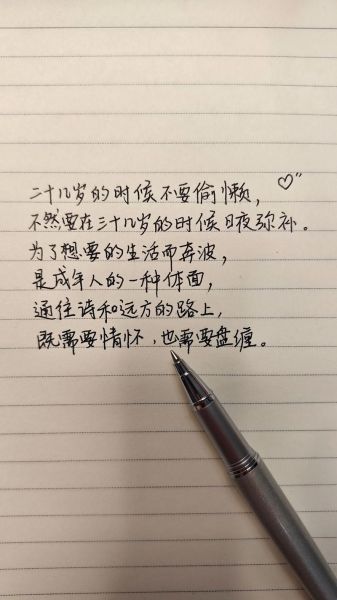 二十几岁的时候不要偷懒，♡"
不然要在三十几岁的时候日夜弥补。
为了想要的生活而奔波，
是成年人的一种体面，
通往诗和远方的路上，
既需要情怀，也需要盘缠。